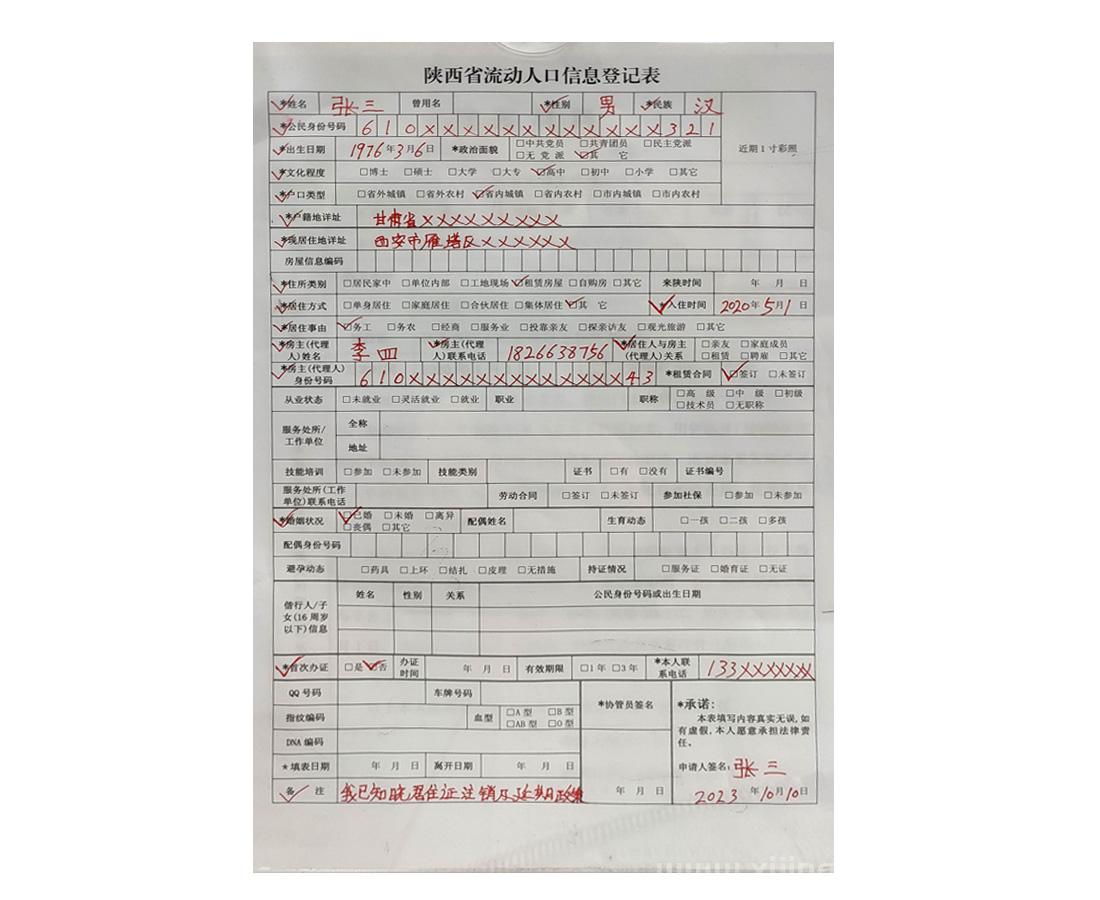 陕西省流动人口信息登记表
*姓名 张三 曾用名 *性别 男 *民族 汉
*公民身份号码 610XXXXXXXXXXXX321 近期1寸彩照
*出生日期 1976年3月6日 *政治面貌 □中共党员 □共青团员 □民主党派
□无党派 □其 它
*文化程度 □博士 □硕士 □大学 □大专 □高中 □初中 □小学 □其它
*户口类型 □省外城镇 □省外农村 □省内城镇 □省内农村 □市内城镇 □市内农村
*户籍地详址 甘肃省XXXXXXXXX
*现居住地详址 西安市雁塔区XXXXXX
房屋信息编码
*住所类别 □居民家中 □单位内部 □工地现场 □租赁房屋 □自购房 □其它 来陕时间 年 月 日
*居住方式 □单身居住 □家庭居住 □合伙居住 □集体居住 □其 它 *入住时间 2020年5月1日
*居住事由 □务工 □务农 □经商 □服务业 □投靠亲友 □探亲访友 □观光旅游 □其它
*房主(代理人)姓名 李四 *房主(代理人)联系电话 1826638756 *居住人与房主(代理人)关系 □亲友 □家庭成员
□租赁 □聘雇 □其它
*房主(代理人)身份号码 610XXXXXXXXXXXXX43 *租赁合同 □签订 □未签订
从业状态 □未就业 □灵活就业 □就业 职业 职称 □高 级 □中 级 □初级
□技术员 □无职称
服务处所/工作单位 全称
地址
技能培训 □参加 □未参加 技能类别 证书 □有 □没有 证书编号
服务处所(工作单位)联系电话 劳动合同 □签订 □未签订 参加社保 □参加 □未参加
*婚姻状况 □已婚 □未婚 □离异 配偶姓名 生育动态 □一孩 □二孩 □多孩
□丧偶 □其它
配偶身份号码
避孕动态 □药具 □上环 □结扎 □皮埋 □无措施 持证情况 □服务证 □婚育证 □无证
偕行人/子女(16周岁以下)信息 姓名 性别 关系 公民身份号码或出生日期
*首次办证 □是 □否 办证时间 年 月 日 有效期限 □1年 □3年 *本人联系电话 133XXXXXXX
QQ号码 车牌号码 *协管员签名 *承诺:
指纹编码 血型 □A型 □B型 本表填写内容真实无误,如
□AB型 □O型 有虚假,本人愿意承担法律责
DNA编码 任。
*填表日期 年 月 日 离开日期 年 月 日 申请人签名:张三
备 注 我已知晓居住证注销及延期政策 年 月 日 2023年10月10日